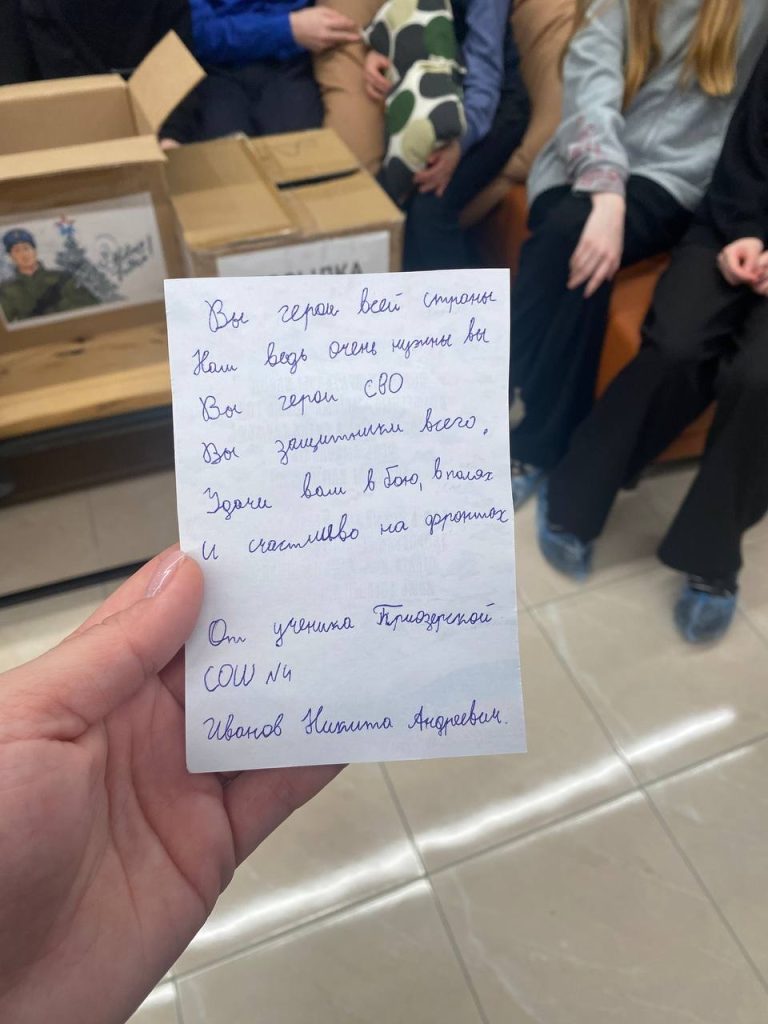 Вы герои всей страны
Нам ведь очень нужны вы
Вы герои СВО
Вы защитники всего,
Удачи вам в бою, в полях
И счастливо на фронтах
От ученика Приозерской
СОШ N4
Иванов Никита Андреевич.